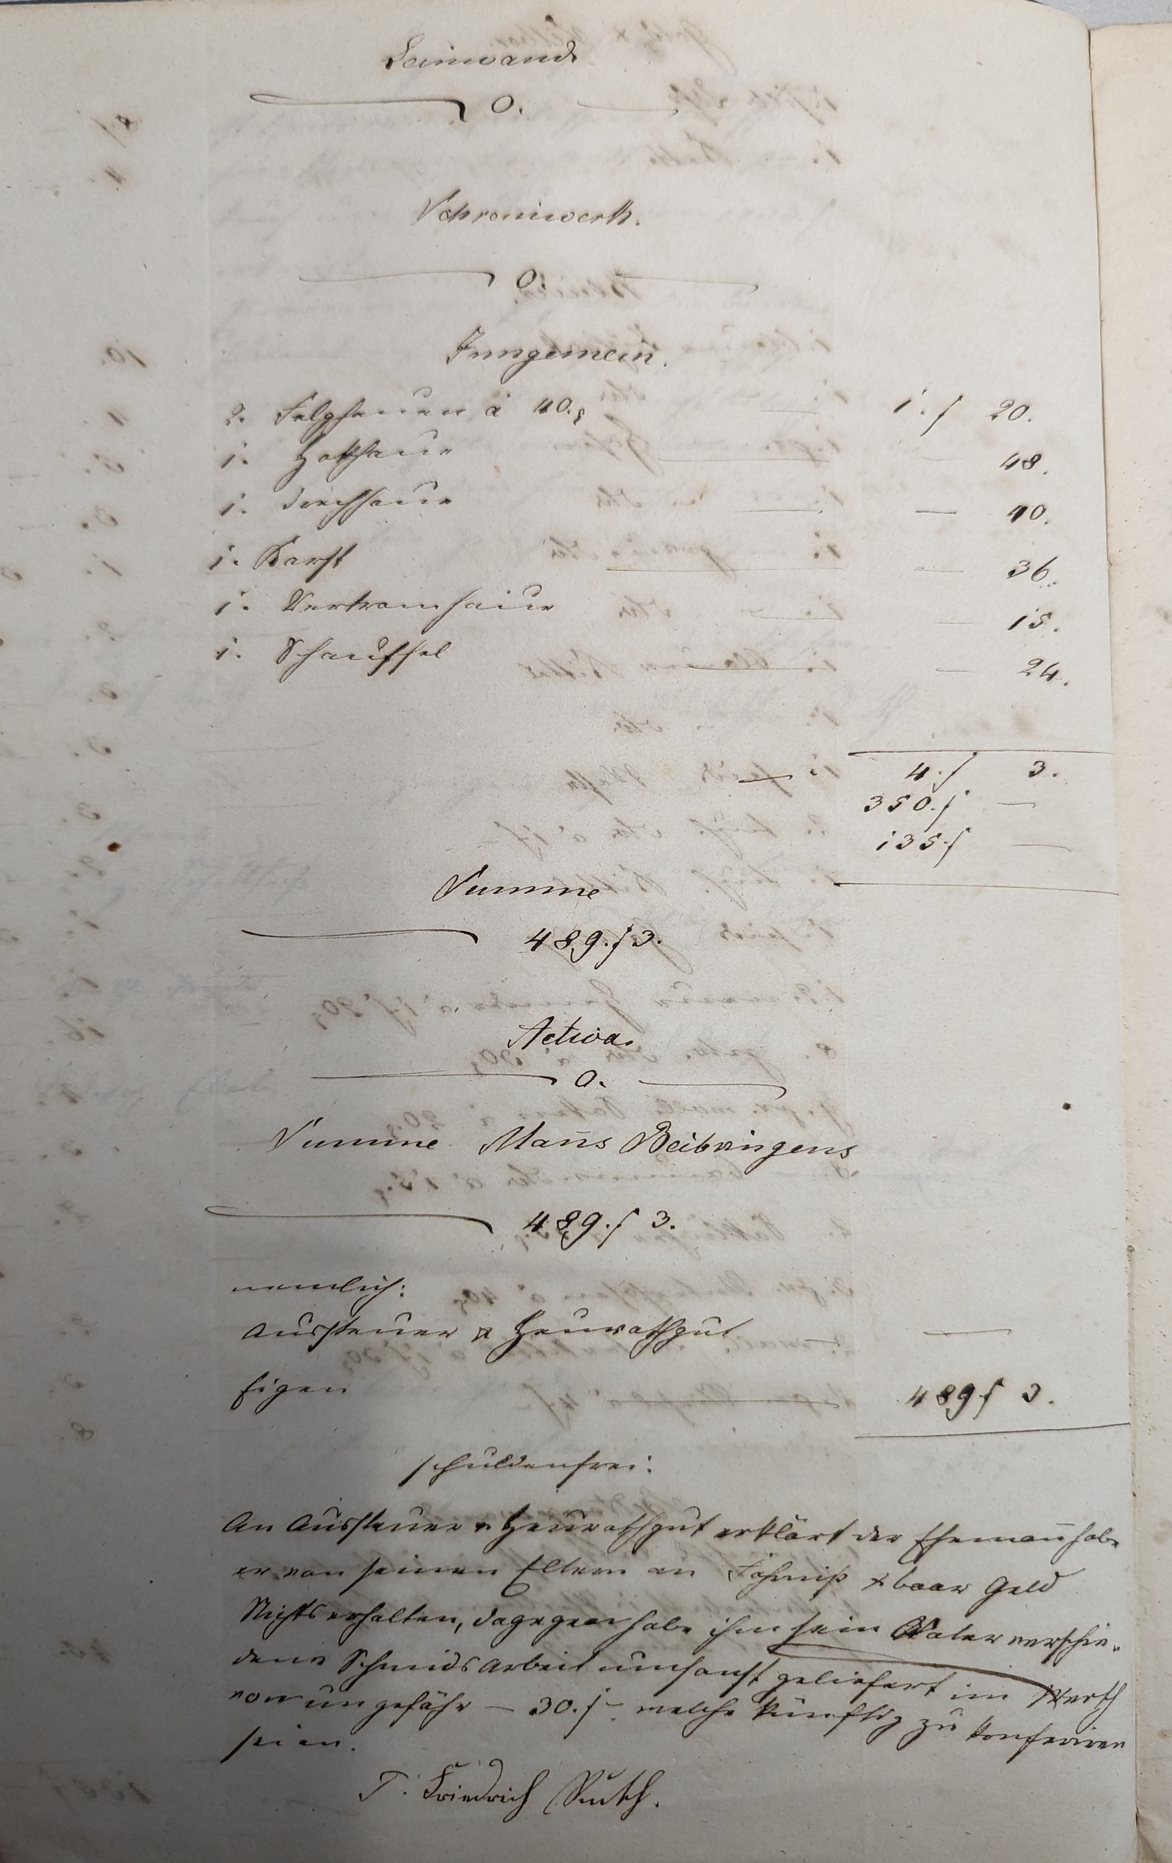 Leinwand
0.
Schreinwerk.
0.
Inngemein.
2. Felghauen à 40.x 1. f 20.
1. Hothaue — 48.
1. — 40.
1. Karst — 36.
1. — 15.
1. Schauffel — 24.
4. f 3.
350. f —
135. f —
Summe
489. f 3.
Activa.
0.
Summe Mañs Beibringens
489. f 3.
nemlich:
Aussteuer & Heurathgut —
Eigen 489 f 3.
schuldenfrei.
An Aussteuer & Heurathgut erklärt der Ehemañ habe
er von seinen Eltern an Fahrniß & baar Geld
Nichts erhalten, dagegen habe ihm sein Vater verschie-
dene Schmids Arbeit umsonst geliefert im Werth
von ungefähr — 30. f — welche künftig zu konferiren
seien.
T. Friedrich